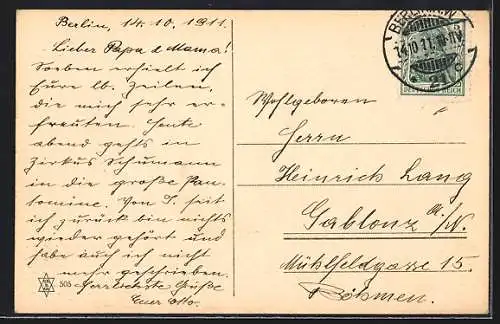 Berlin, 14.10.1911.
Lieber Papa & Mama!
Soeben erhielt ich
Eure lb. Zeilen,
die mich sehr er-
freuten. Heute
abend gehts in
Zirkus Schumann
in die große Pan-
tomime. Von I. seit
ich zurück bin nichts
wieder gehört und
habe auch ich nicht
mehr geschrieben.
Herzlichste Grüße
Euer Otto.
505
BERLIN N.W.
14.10.11.
Wohlgeboren
Herrn
Heinrich Lang
Gablonz a./N.
Mühlfeldgasse 15.
Böhmen.